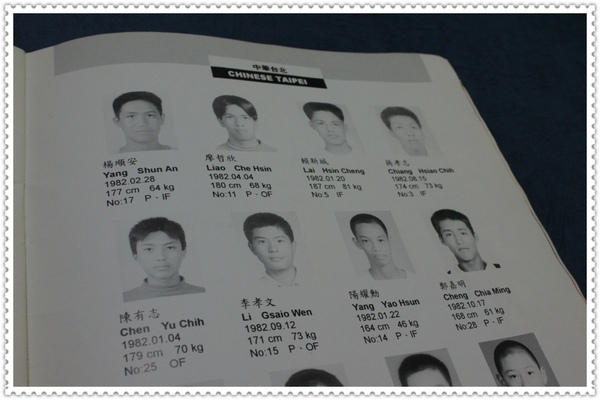 中華台北
CHINESE TAIPEI
楊順安
Yang Shun An
1982.02.28
177 cm 64 kg
No:17 P · IF
廖哲欣
Liao Che Hsin
1982.04.04
180 cm 68 kg
No:11 P · IF
賴新城
Lai Hsin Cheng
1982.01.20
187 cm 81 kg
No:5 IF
蔣孝志
Chiang Hsiao Chih
1982.08.15
174 cm 73 kg
No:3 IF
陳有志
Chen Yu Chih
1982.01.04
179 cm 70 kg
No:25 OF
李孝文
Li Gsaio Wen
1982.09.12
171 cm 73 kg
No:15 P · OF
陽耀勳
Yang Yao Hsun
1982.01.22
164 cm 46 kg
No:14 P · OF
鄭嘉明
Cheng Chia Ming
1982.10.17
168 cm 61 kg
No:28 P · IF